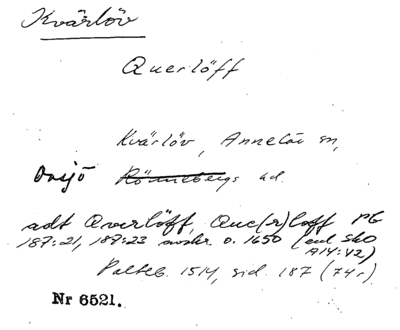 Kvärlöv
Querlöff
Kvärlöv, Annelöv sn,
Onsjö Rönnebergs hd.
adt Qverlöff, Que(r)loff PG
187:21, 187:23 avskr o. 1650 (enl SkO
A14:42)
Palteb. 1514, sid. 187 (74r)
Nr 6521.